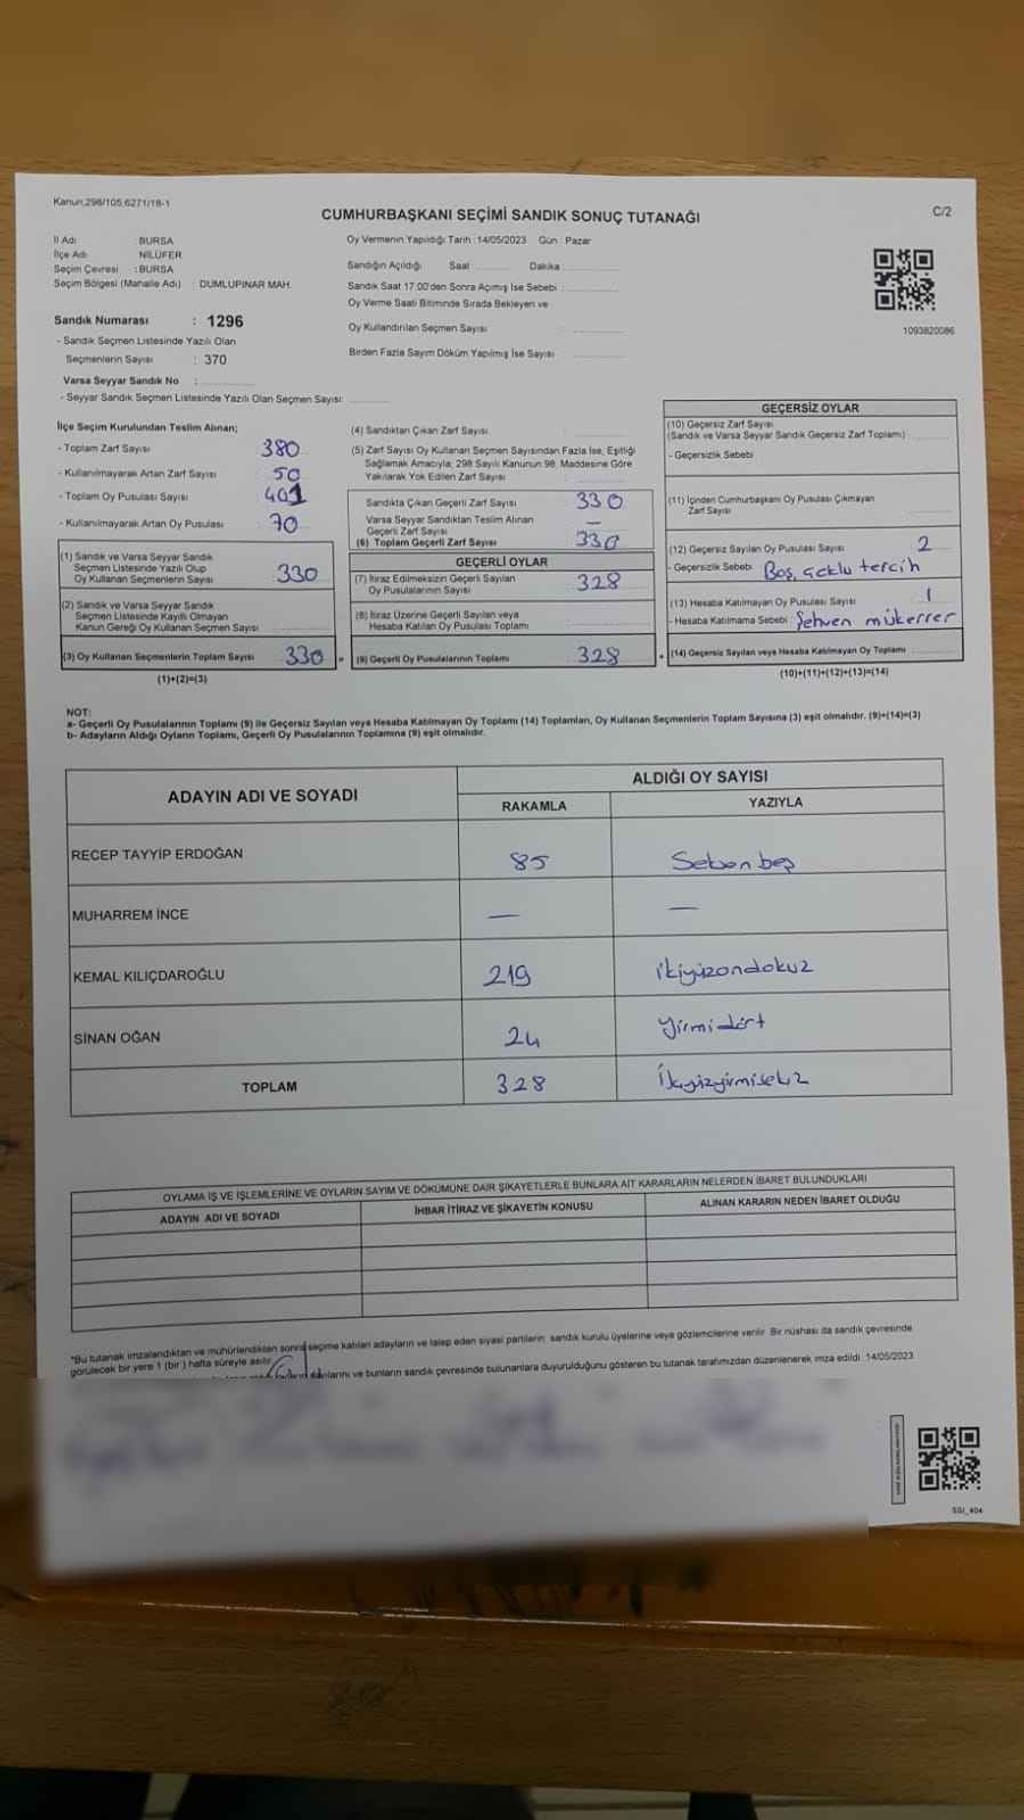 Kanun,298/105,6271/18-1
CUMHURBAŞKANI SEÇİMİ SANDIK SONUÇ TUTANAĞI
C/2
İl Adı BURSA
İlçe Adı NİLÜFER
Seçim Çevresi : BURSA
Seçim Bölgesi (Mahalle Adı) : DUMLUPINAR MAH.
Sandık Numarası : 1296
- Sandık Seçmen Listesinde Yazılı Olan
Seçmenlerin Sayısı : 370
Varsa Seyyar Sandık No :
- Seyyar Sandık Seçmen Listesinde Yazılı Olan Seçmen Sayısı:
Oy Vermenin Yapıldığı Tarih : 14/05/2023 Gün : Pazar
Sandığın Açıldığı Saat Dakika
Sandık Saat 17:00'den Sonra Açımış İse Sebebi :
Oy Verme Saati Bitiminde Sırada Bekleyen ve
Oy Kullandırılan Seçmen Sayısı
Birden Fazla Sayım Döküm Yapılmış İse Sayısı
1093820086
İlçe Seçim Kurulundan Teslim Alınan;
- Toplam Zarf Sayısı 380
- Kullanılmayarak Artan Zarf Sayısı 50
- Toplam Oy Pusulası Sayısı 401
- Kullanılmayarak Artan Oy Pusulası 70
(1) Sandık ve Varsa Seyyar Sandık
Seçmen Listesinde Yazılı Olup
Oy Kullanan Seçmenlerin Sayısı 330
(2) Sandık ve Varsa Seyyar Sandık
Seçmen Listesinde Kayıtlı Olmayan
Kanun Gereği Oy Kullanan Seçmen Sayısı
(3) Oy Kullanan Seçmenlerin Toplam Sayısı 330
(1)+(2)=(3)
(4) Sandıktan Çıkan Zarf Sayısı
(5) Zarf Sayısı Oy Kullanan Seçmen Sayısından Fazla İse, Eşitliği
Sağlamak Amacıyla, 298 Sayılı Kanunun 98. Maddesine Göre
Yakılarak Yok Edilen Zarf Sayısı
Sandıkta Çıkan Geçerli Zarf Sayısı 330
Varsa Seyyar Sandıktan Teslim Alınan
Geçerli Zarf Sayısı —
(6) Toplam Geçerli Zarf Sayısı 330
GEÇERLİ OYLAR
(7) İtiraz Edilmeksizin Geçerli Sayılan
Oy Pusulalarının Sayısı 328
(8) İtiraz Üzerine Geçerli Sayılan veya
Hesaba Katılan Oy Pusulası Toplamı
= (9) Geçerli Oy Pusulalarının Toplamı 328
GEÇERSİZ OYLAR
(10) Geçersiz Zarf Sayısı
(Sandık ve Varsa Seyyar Sandık Geçersiz Zarf Toplamı)
- Geçersizlik Sebebi
(11) İçinden Cumhurbaşkanı Oy Pusulası Çıkmayan
Zarf Sayısı
(12) Geçersiz Sayılan Oy Pusulası Sayısı 2
- Geçersizlik Sebebi Boş, tercih
(13) Hesaba Katılmayan Oy Pusulası Sayısı 1
- Hesaba Katılmama Sebebi Sehven mükerrer
+ (14) Geçersiz Sayılan veya Hesaba Katılmayan Oy Toplamı
(10)+(11)+(12)+(13)=(14)
NOT:
a- Geçerli Oy Pusulalarının Toplamı (9) ile Geçersiz Sayılan veya Hesaba Katılmayan Oy Toplamı (14) Toplamları, Oy Kullanan Seçmenlerin Toplam Sayısına (3) eşit olmalıdır. (9)+(14)=(3)
b- Adayların Aldığı Oyların Toplamı, Geçerli Oy Pusulalarının Toplamına (9) eşit olmalıdır.
ADAYIN ADI VE SOYADI
ALDIĞI OY SAYISI
RAKAMLA YAZIYLA
RECEP TAYYİP ERDOĞAN 85 Seksenbeş
MUHARREM İNCE — —
KEMAL KILIÇDAROĞLU 219 ikiyüzondokuz
SİNAN OĞAN 24 Yirmidört
TOPLAM 328
OYLAMA İŞ VE İŞLEMLERİNE VE OYLARIN SAYIM VE DÖKÜMÜNE DAİR ŞİKAYETLERLE BUNLARA AİT KARARLARIN NELERDEN İBARET BULUNDUKLARI
ADAYIN ADI VE SOYADI İHBAR İTİRAZ VE ŞİKAYETİN KONUSU ALINAN KARARIN NEDEN İBARET OLDUĞU
*Bu tutanak imzalandıktan ve mühürlendikten sonra seçime katılan adayların ve talep eden siyasi partilerin sandık kurulu üyelerine veya gözlemcilerine verilir. Bir nüshası da sandık çevresinde
görülecek bir yere 1 (bir) hafta süreyle asılır.
ve bunların sandık çevresinde bulunanlara duyurulduğunu gösteren bu tutanak tarafımızdan düzenlenerek imza edildi. 14/05/2023